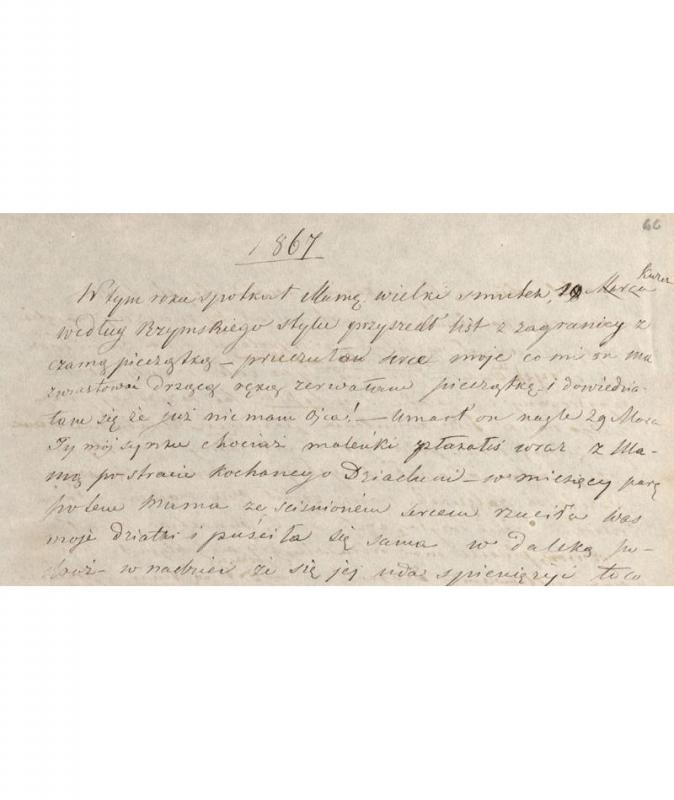 66
1867
W tym roku spotkał Mamę wielki smutek, 10 Marca
według Rzymskiego stylu przyszedł list z zagranicy z
czarną pieczątką – przeczuło serce moje co mi on ma
zwiastować drżącą ręką zerwałam pieczątkę i dowiedzia-
łam się że już nie mam Ojca! – Umarł on nagle 29 Marca
Ty mój synku chociaż maleńki płakałeś wraz z Ma-
mą po stracie kochanego Dziaduni – w miesięcy parę
potem Mama ze ściśnioném sercem rzuciła was
moje dziatki i puściła się sama w daleką po-
dróż – w nadziei że się jej uda spieniężyć to co